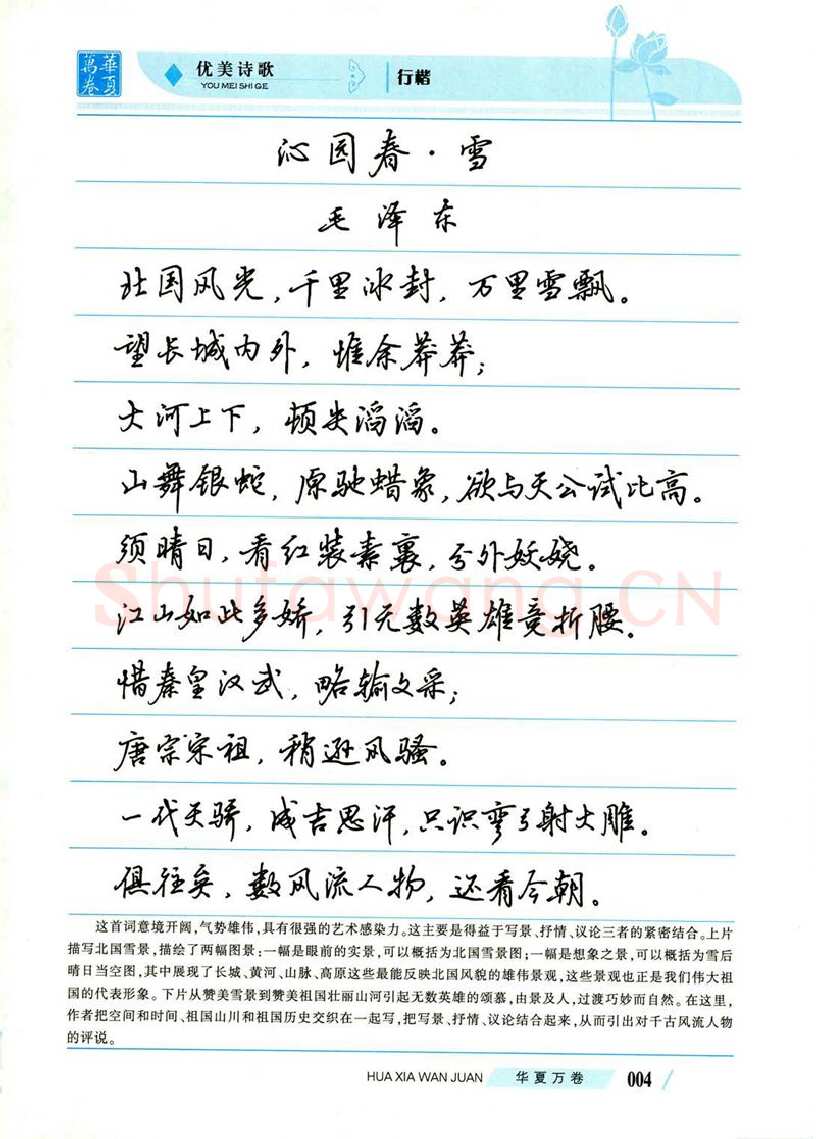 華夏
萬卷
优美诗歌
YOU MEI SHI GE
行楷
沁园春·雪
毛泽东
北国风光，千里冰封，万里雪飘。
望长城内外，惟余莽莽；
大河上下，顿失滔滔。
山舞银蛇，原驰蜡象，欲与天公试比高。
须晴日，看红装素裹，分外妖娆。
江山如此多娇，引无数英雄竞折腰。
惜秦皇汉武，略输文采；
唐宗宋祖，稍逊风骚。
一代天骄，成吉思汗，只识弯弓射大雕。
俱往矣，数风流人物，还看今朝。
Shufawang.CN
这首词意境开阔，气势雄伟，具有很强的艺术感染力。这主要是得益于写景、抒情、议论三者的紧密结合。上片
描写北国雪景，描绘了两幅图景：一幅是眼前的实景，可以概括为北国雪景图；一幅是想象之景，可以概括为雪后
晴日当空图，其中展现了长城、黄河、山脉、高原这些最能反映北国风貌的雄伟景观，这些景观也正是我们伟大祖
国的代表形象。下片从赞美雪景到赞美祖国壮丽山河引起无数英雄的颂慕，由景及人，过渡巧妙而自然。在这里，
作者把空间和时间、祖国山川和祖国历史交织在一起写，把写景、抒情、议论结合起来，从而引出对千古风流人物
的评说。
HUA XIA WAN JUAN
华夏万卷
004